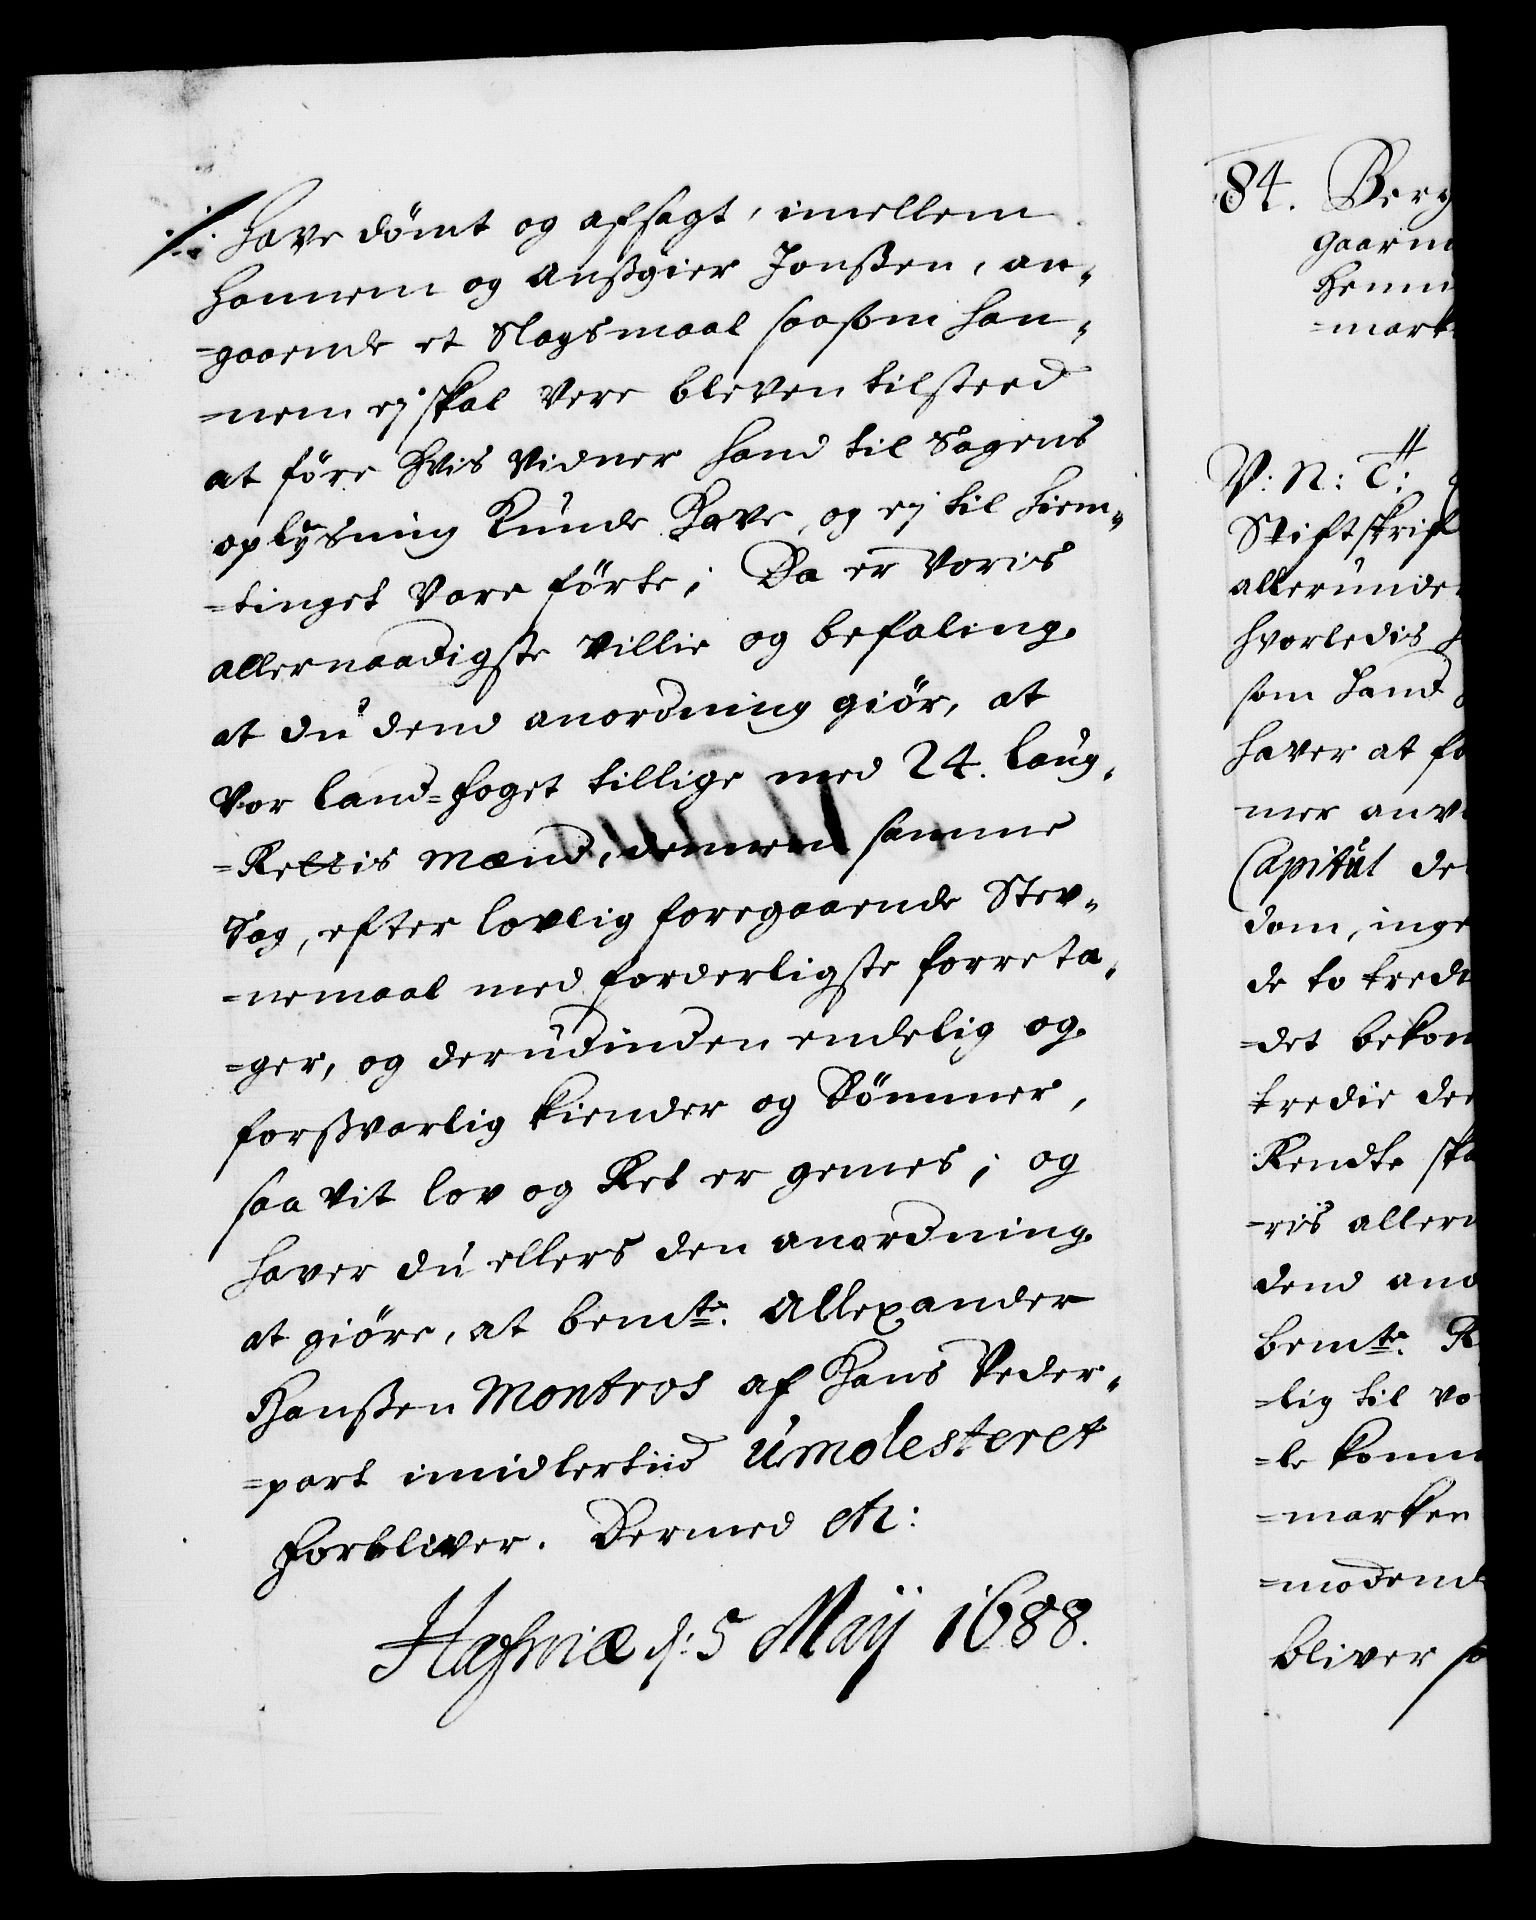 ./. Have dömt og afsagt, imellem
hannem og Anßgier Jonßen, an-
=gaaende et Slagsmaal saasom han-
=nem ej skal vere bleven tilsteed
at före hvis vidner hand til Sagens
oplysning kunde have, og ej til hiem-
=tinget vare förte; Da er voris
allernaadigste villie og befaling
at du dend anordning giör, at
vor land=foget tillige med 24. laug-
=Rettis Mænd, dennem samme
Sag, efter lovlig foregaaende Stev-
=nemaal med forderligste forreta-
=ger, og derudinden endelig og
forßvarlig kiender og Dömmer,
saa vit lov og Ret er gemes; og
haver du ellers den anordning
at giöre, at bemte. Allexander
Hanßen Montros af hans veder-
=part imidlertiid umolesteret
forbliver. Dermed etc:
Hafniæ d: 5 Maij 1688.
84. Berg
gaarm
Hemm
=mark
V: N: T:
Stiftskrif
allerunde
hvorledis
som hand
haver at fo
mer anv
Capitul de
dom, inge
de to tred
=det bekom
tredie de
Rendte ska
=ris allern
dend ano
bemte. R
=lig til vo
=le komm
=marken
=modend
bliver so